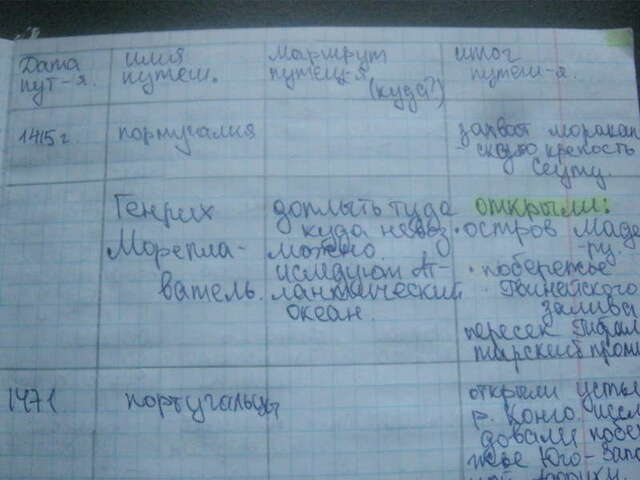 Дата
пут-я.
имя
путеш.
маршрут
путеш-я
(куда?)
итог
путеш-я.
1415 г.
португалия
захват
скую крепость
Сеуту.
Генрих
Морепла-
ватель.
доплыть туда
куда невоз-
можно.
исследуют Ат-
лантический
океан.
открыли:
• остров Маде
-ру.
• побережье
Гвинейского
залива
пересек Гибрал
тарский прол
1471
португальцы
открыли устье
р. Конго. иссле
довали побер
жье Юго-Запа
ной Африки.